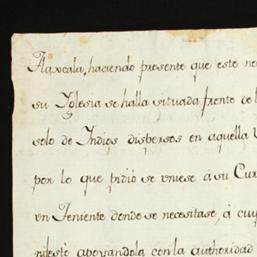 Tlaxcala, haciendo presente que este ne
su Yglesia se halla situada frente de l
solo de Indios dispersos en aquella
por lo que pidió se uniese á su Cur
un Teniente donde se necesitase, á cuy
nifestó apoyandola con la authoridad